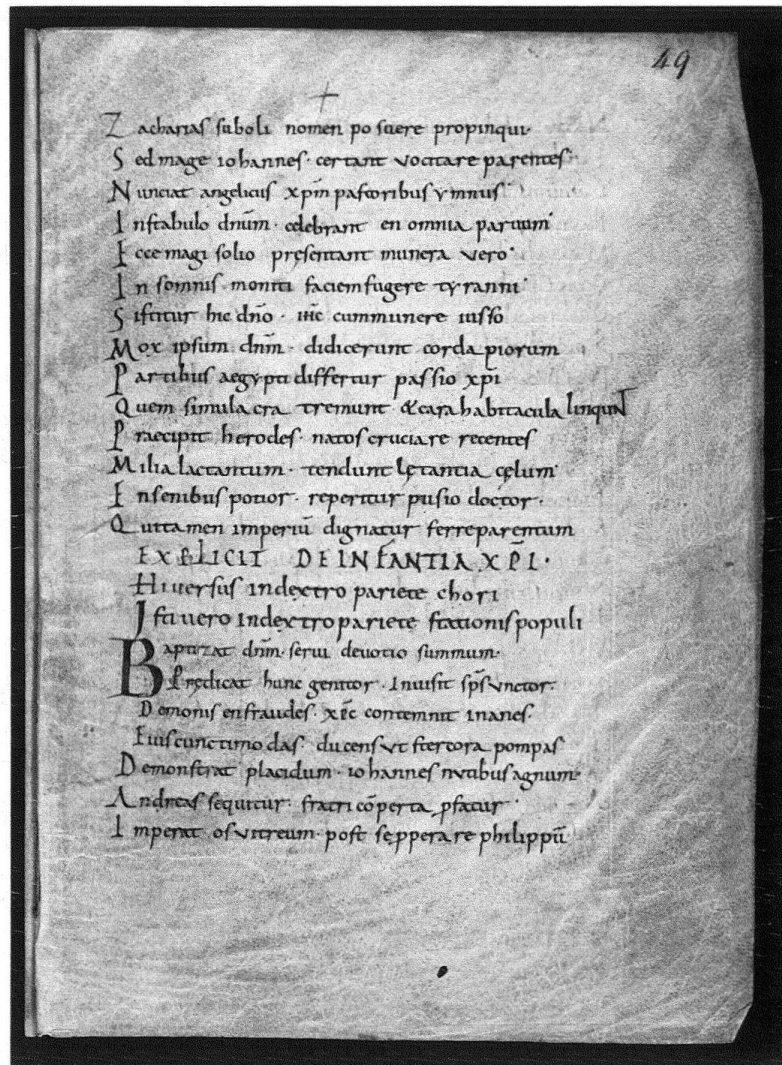 49
Zacharias suboli nomen posuere propinqui·
Sed mage iohannes· certant vocitare parentes·
Nunciat angelicus xp̄m pastoribus ymnus·
Instabulo dn̄um· celebrant en omnia paruum·
Ecce magi solio pręsentant munera vero·
In somnis· moniti faciem fugere tyranni·
Sistitur hic dn̄o· hīc cummunere iusso
Mox ipsum dn̄m· didicerunt corda piorum
Partibus aegypti differtur passio xp̄i
Quem simulacra tremunt &cara habitacula linqunt
Praecipit herodes· natos cruciare recentes
Milia lactantum· tendunt lętantia cęlum·
In senibus potior· reperitur pusio doctor·
Quitamen imperiū dignatur ferre parentum
EXPLICIT DE INFANTIA XP̄I·
Hi versus indextro pariete chori
Isti vero indextro pariete stationis populi
Baptizat dn̄m· serui deuotio summum·
Prędicat hunc genitor· Inuisit sp̄s vnctor·
Demonis en fraudes· xp̄c contemnit inanes·
Eius cunctimodas· ducens vt stercora pompas
Demonstrat placidum· iohannes nutibus agnum·
Andreas sequitur· fratri cōperta p̄fatur·
Imperat os vitreum· post se pperare philippū